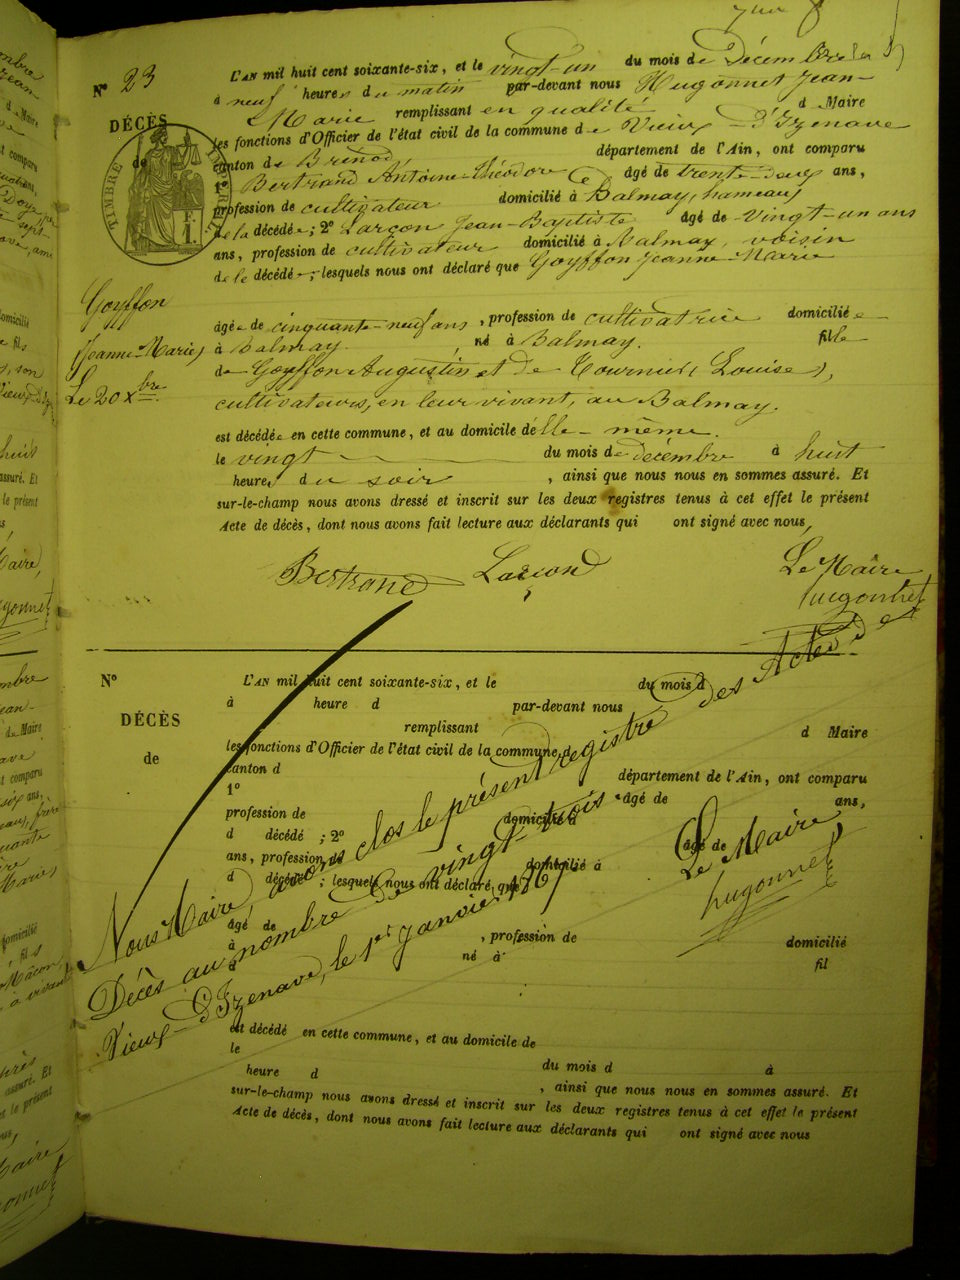 N° 23
L'AN mil huit cent soixante-six, et le vingt-un du mois de Décembre
à neuf heures du matin par-devant nous Hugonnet Jean-
Marie remplissant en qualité d Maire
DÉCÈS
les fonctions d'Officier de l'état civil de la commune de Vieux-d'Izenave
de
canton de Brénod département de l'Ain, ont comparu
TIMBRE
1° Bertrand Antoine-Théodore âgé de trente-deux ans,
profession de cultivateur domicilié à Balmay, hameau
de la décédée; 2° Larçon Jean-Baptiste âgé de vingt-un ans
ans, profession de cultivateur domicilié à Balmay, voisin
de la décédée; lesquels nous ont déclaré que Goyffon Jeanne-Marie
Goyffon
Jeanne-Marie
Le 20 Xbre
âgée de cinquante-neuf ans, profession de cultivatrice domiciliée
à Balmay. né à Balmay. fille
de Goyffon Augustin et de Tournier (Louise),
cultivateurs, en leur vivant, au Balmay.
est décédée en cette commune, et au domicile d'elle-même.
le vingt du mois de décembre à huit
heures du soir, ainsi que nous nous en sommes assuré. Et
sur-le-champ nous avons dressé et inscrit sur les deux registres tenus à cet effet le présent
Acte de décès, dont nous avons fait lecture aux déclarants qui ont signé avec nous,
Bertrand Larçon Le Maire
hugonnet
N° L'AN mil huit cent soixante-six, et le du mois d
à heure d par-devant nous
DÉCÈS
remplissant d Maire
les fonctions d'Officier de l'état civil de la commune d
de
canton d département de l'Ain, ont comparu
1° âgé de ans,
profession de domicilié à
d décédé ; 2° âgé de
ans, profession de domicilié à
d décédé ; lesquels nous ont déclaré que
âgé de , profession de domicilié
à né à fil
d
est décédé en cette commune, et au domicile de
le du mois d à
heure d , ainsi que nous nous en sommes assuré. Et
sur-le-champ nous avons dressé et inscrit sur les deux registres tenus à cet effet le présent
Acte de décès, dont nous avons fait lecture aux déclarants qui ont signé avec nous
Nous Maire, avons clos le présent registre des Actes de
Décès au nombre de vingt-trois.
Vieux-d'Izenave, le 1er janvier 1867
Le Maire
hugonnet